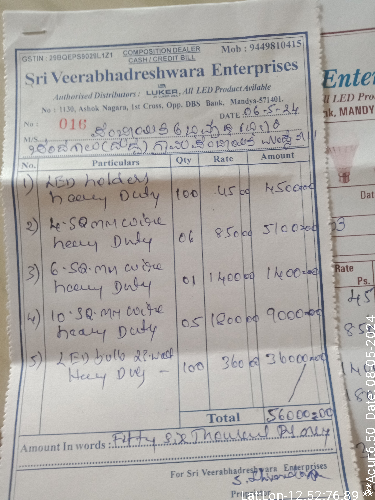 GSTIN : 29BQEPS5029L1Z1 COMPOSITION DEALER Mob : 9449810415
CASH / CREDIT BILL
Sri Veerabhadreshwara Enterprises
Authorised Distributors : LUKER, All LED Product Avilable
No : 1130, Ashok Nagara, 1st Cross, Opp. DBS Bank, Mandya-571401.
No : 016 DATE 06-5-24
M/S
No. Particulars Qty Rate Amount
1) LED holders
heavy Duty 100 45 00 4500 00
2) 4-SQ mm wire
heavy Duty 06 850 00 5100 00
3) 6-SQ-mm wire
heavy Duty 01 1400 00 1400 00
4) 10-SQ-mm wire
heavy Duty 05 1800 00 9000 00
5) LED bulb 22 watt
Heavy Duty - 100 360 00 36000 00
Total 56000=00
Amount In words : Fifty Six Thousand Rs only
For Sri Veerabhadreshwara Enterprises
Enter
ll LED Pro
nk, MANDY
Dat
Rate
Ps.
Lat/Lon-12.52:76.89
**Acur6.50 Date:08-05-2024